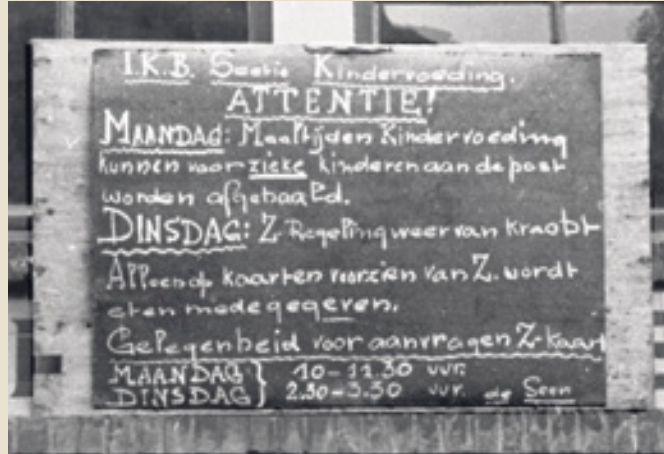 I.K.B. Sectie Kindervoeding.
ATTENTIE!
MAANDAG: Maaltijden Kindervoeding
kunnen voor zieke kinderen aan de post
worden afgehaald.
DINSDAG: Z-Regeling weer van kracht
Alleen op kaarten voorzien van Z. wordt
eten medegegeven.
Gelegenheid voor aanvragen Z-kaart
MAANDAG } 10-11.30 uur.
DINSDAG } 2.30-3.30 uur. de Secr